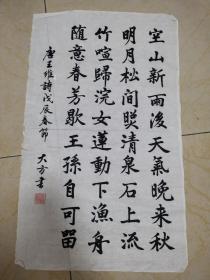 空山新雨後天氣晚来秋
明月松间照清泉石上流
竹喧歸浣女蓮動下漁舟
随意春芳歇王孫自可留
唐王維詩戊辰春節
大方書